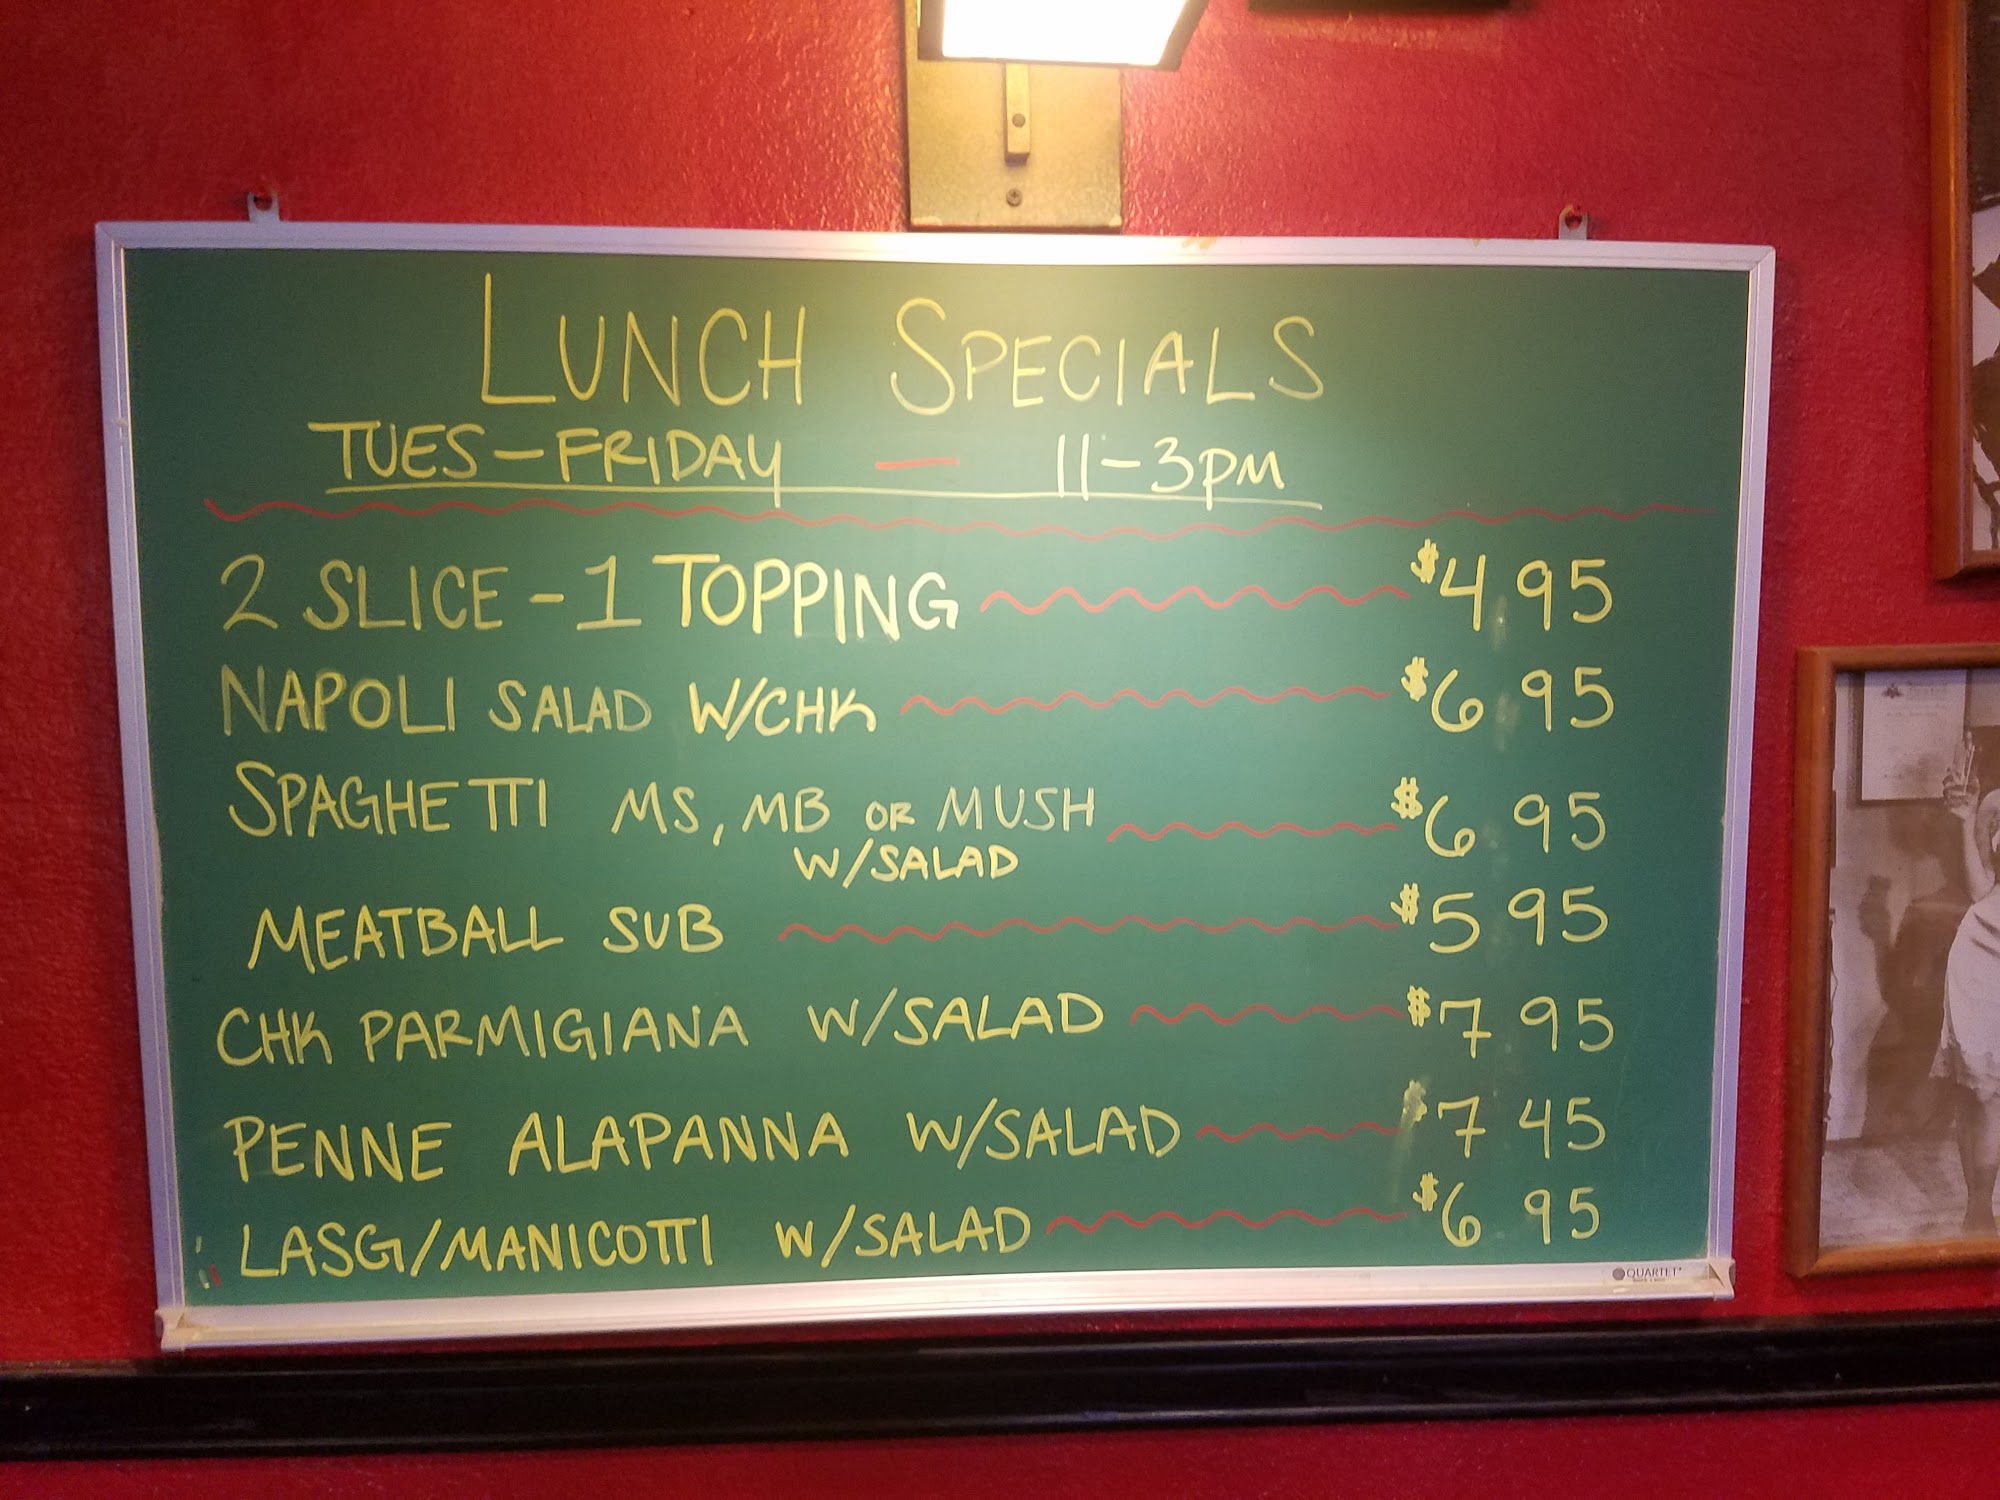 LUNCH SPECIALS
TUES-FRIDAY — 11-3PM
2 SLICE - 1 TOPPING $4 95
NAPOLI SALAD W/CHK $6 95
SPAGHETTI MS, MB OR MUSH $6 95
W/SALAD
MEATBALL SUB $5 95
CHK PARMIGIANA W/SALAD $7 95
PENNE ALAPANNA W/SALAD $7 45
LASG/MANICOTTI W/SALAD $6 95
QUARTET